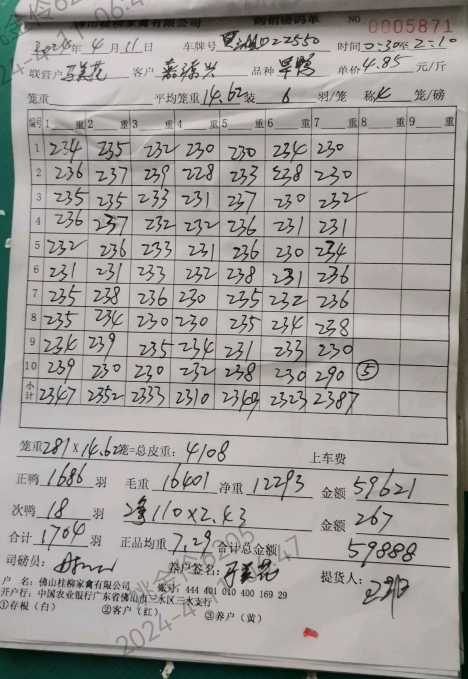 佛山桂柳家禽有限公司 购销磅码单 NO 0005871
2024年 4月 11日 车牌号 022550 时间 0:30至2:10
联营户 客户 品种 旱鸭 单价 4.85 元/斤
笼重: 平均笼重 14.62 装 6 羽/笼 称 4 笼/磅
编号 1 重 2 重 3 重 4 重 5 重 6 重 7 重 8 重 9 重
1 234 235 232 230 230 234 230
2 236 237 239 228 233 238 230
3 235 235 233 231 237 230 232
4 236 237 232 232 236 231 231
5 232 236 233 231 236 230 234
6 231 231 233 232 238 231 236
7 235 238 236 230 235 232 236
8 235 234 230 230 235 234 238
9 234 239 235 234 231 233 230
10 239 230 230 232 238 230 290 ⑤
小计 2347 2352 2333 2310 2349 2323 2387
笼重 281 × 14.62 笼=总皮重: 4108 上车费
正鸭 1686 羽 毛重 16401 净重 12293 金额 59621
次鸭 18 羽 110×2.43 金额 267
合计 1704 羽 正品均重 7.29 合计总金额 59888
司磅员: 养户签名: 提货人:
户 名: 佛山桂柳家禽有限公司 账号: 444 401 010 400 169 29
开户行: 中国农业银行广东省佛山市三水区三水支行
①存根(白) ②客户(红) ③养户(黄)